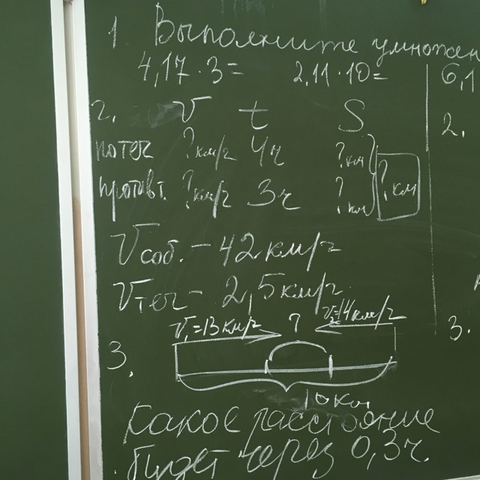 1 Выполните умножен
4,17·3= 2,11·10= 6,1
2. V t S
по теч ? км/ч 4ч ? км
против т. ? км/ч 3ч ? км ? км
2.
Vсоб. – 42 км/ч
Vтеч – 2,5 км/ч
V₁=13 км/ч ? V₂=14 км/ч
3.
3.
10 км
Какое расстояние
будет через 0,3ч.